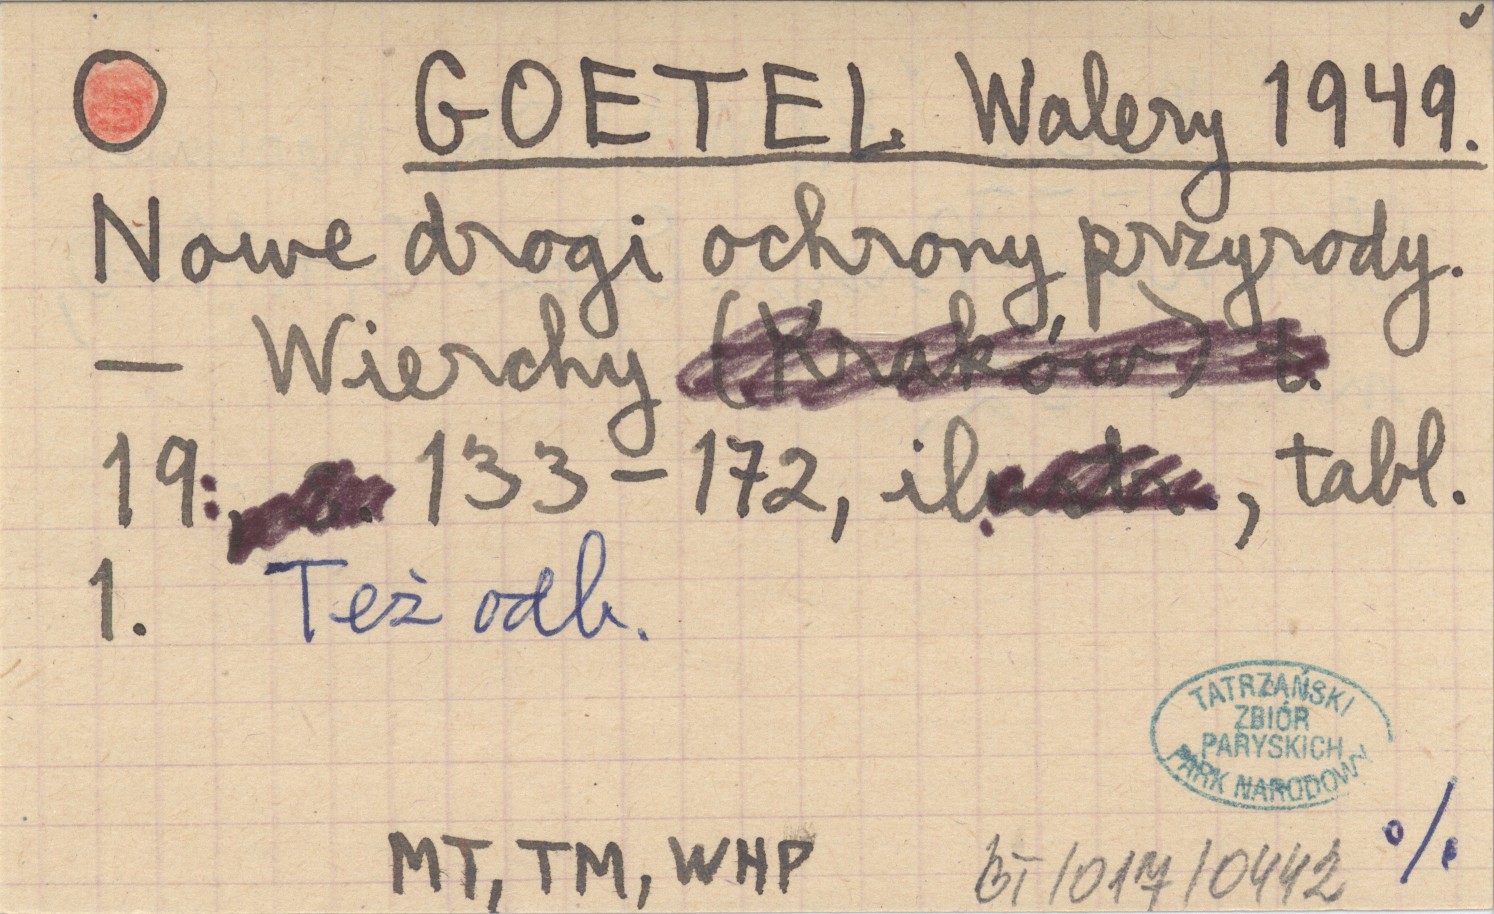 GOETEL Walery 1949.
Nowe drogi ochrony przyrody.
— Wierchy (Kraków) t.
19: 133-172, il., tabl.
1. Też odb.
TATRZAŃSKI
ZBIÓR
PARYSKICH
PARK NARODOWY
MT, TM, WHP
BT/017/0442
%